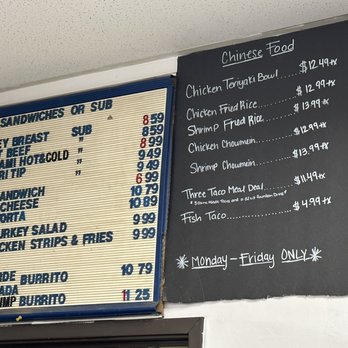 SANDWICHES OR SUB
8 59
EY BREAST SUB 8 59
BEEF " 8 99
AMI HOT&COLD " 9 49
RI TIP " 9 49
SANDWICH 10 79
CHEESE 10 89
ORTA 9 99
URKEY SALAD 9 99
CKEN STRIPS & FRIES 9 99
RDE BURRITO 10 79
ADA
IMP BURRITO 11 25
Chinese Food
Chicken Teriyaki Bowl......$12.49+x
Chicken Fried Rice......$12.99+x
Shrimp Fried Rice......$13.99+x
Chicken Chowmein......$12.99+x
Shrimp Chowmein......$13.99+x
Three Taco Meal Deal......$11.49+x
Fish Taco......$4.99+x
*Monday-Friday ONLY*